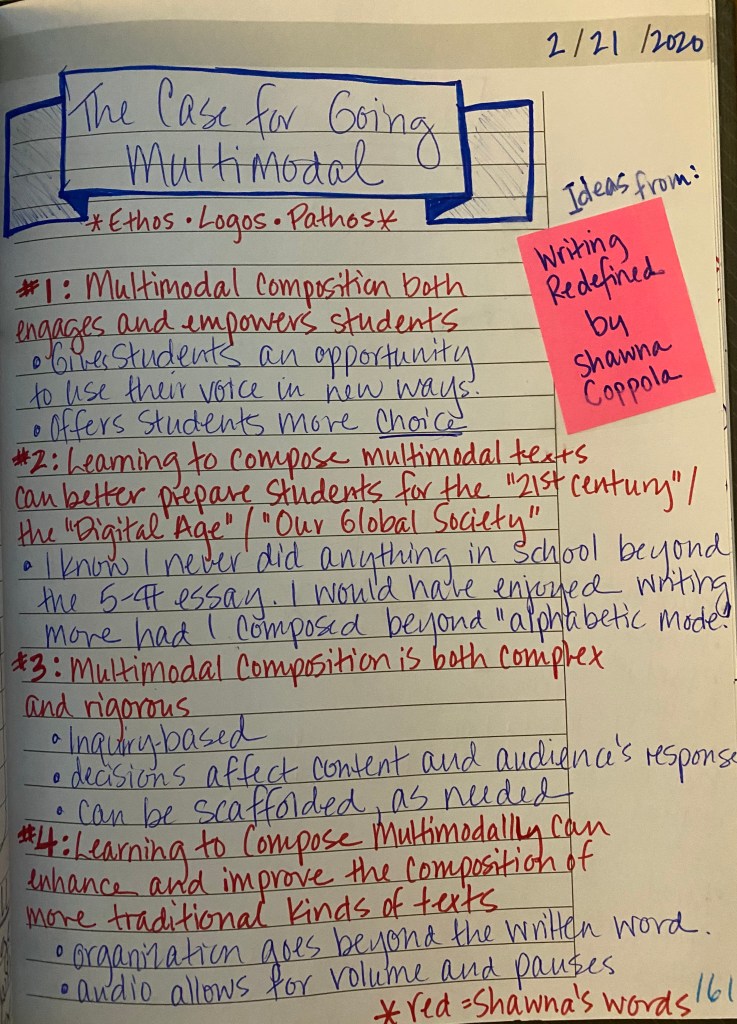 2/21/2020
The Case for Going
Multimodal
*Ethos • Logos • Pathos*
Ideas from:
Writing
Redefined
by
Shawna
Coppola
#1: Multimodal composition both
engages and empowers students
• Gives students an opportunity
to use their voice in new ways.
• Offers students more choice
#2: Learning to compose multimodal texts
can better prepare students for the "21st century"/
the "Digital Age" / "Our Global Society"
• I know I never did anything in school beyond
the 5-¶ essay. I would have enjoyed writing
more had I composed beyond "alphabetic mode."
#3: Multimodal Composition is both complex
and rigorous
• Inquiry-based
• decisions affect content and audience's response
• can be scaffolded, as needed
#4: Learning to Compose Multimodally can
enhance and improve the composition of
more traditional kinds of texts
• organization goes beyond the written word.
• audio allows for volume and pauses
*red = Shawna's words
161